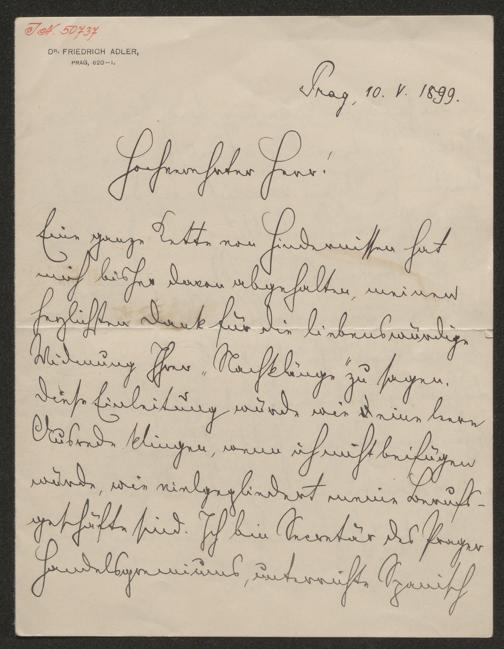 I.N. 50737
DR. FRIEDRICH ADLER,
PRAG, 620–I.
Prag, 10. V. 1899.
Hochverehrter Herr!
Eine ganze Kette von Hindernissen hat
mich bisher davon abgehalten, meinen
herzlichsten Dank für die liebenswürdige
Widmung Ihrer „Nachklänge“ zu sagen.
Diese Einleitung würde wie eine leere
Ausrede klingen, wenn ich nicht beifügen
würde, wie vielgegliedert meine Berufs-
geschäfte sind. Ich bin Secretär des Prager
Handelsgremiums, unterrichte Spanisch